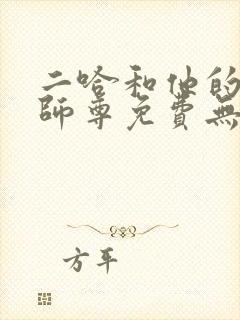 二哈和他的
師尊免費無
方平